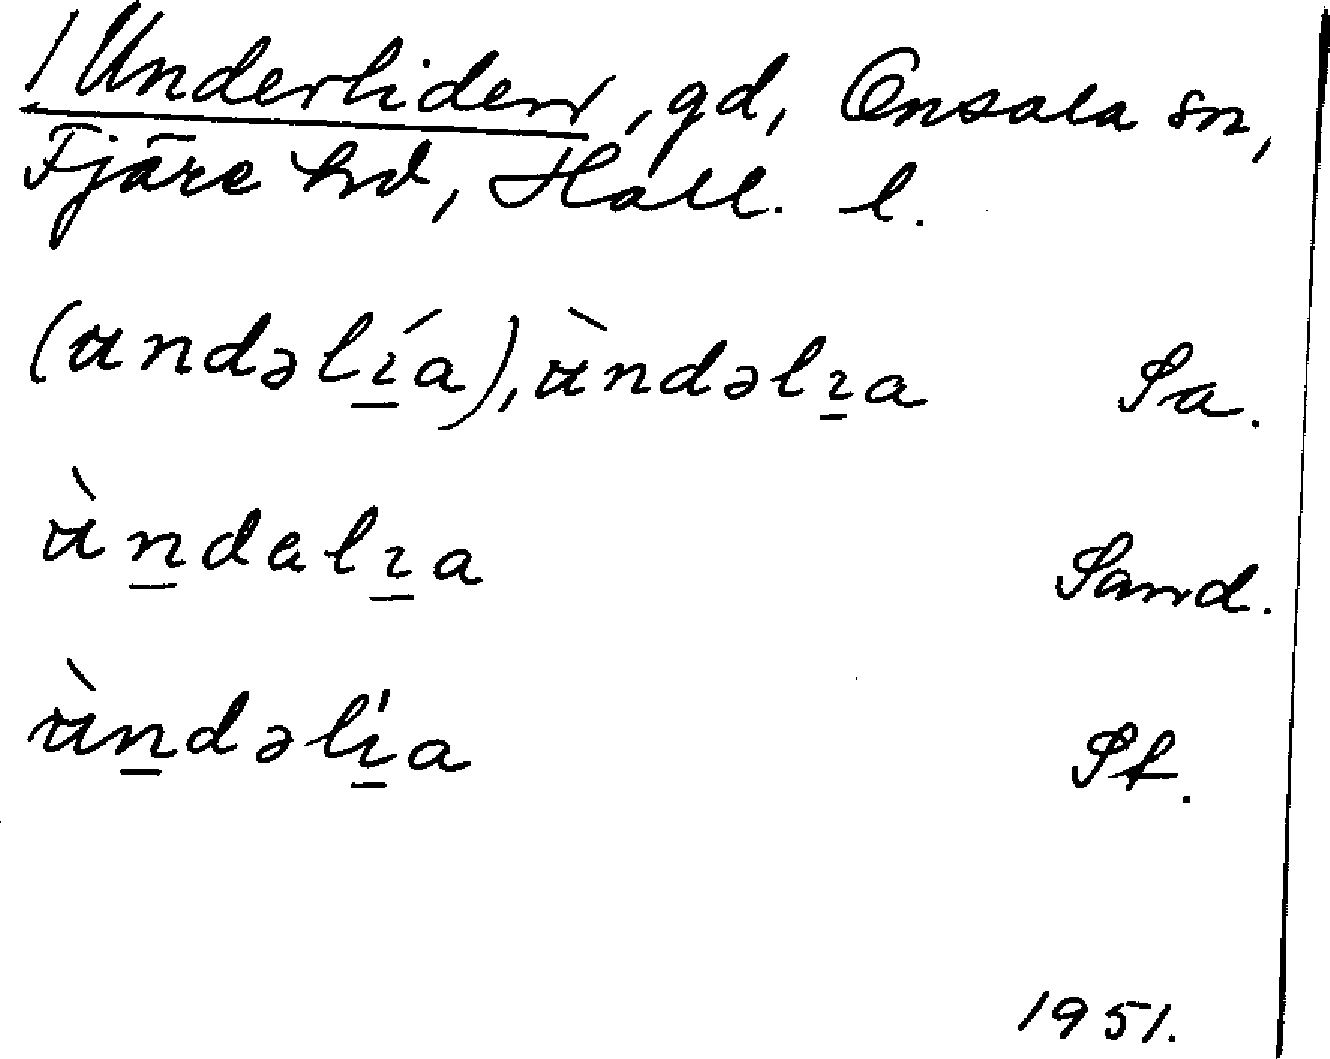 /Underliden/, gd, Onsala sn,
Fjäre hd, Hall. l.
(undəlı̲́a), ùndəlı̲a Sa.
ùn̲dəlı̲a Sand.
ùn̲dəlı̲́a St.
1951.